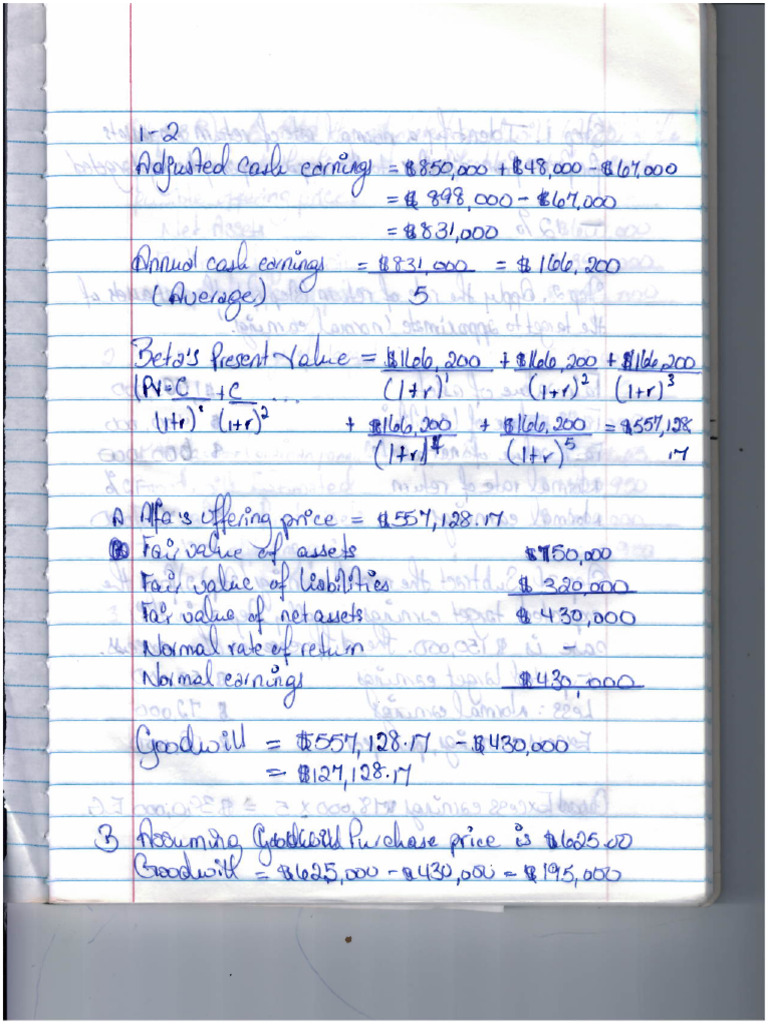 1-2
Adjusted cash earnings = $850,000 + $48,000 - $67,000
= $898,000 - $67,000
= $831,000
Annual cash earnings = $831,000 = $166,200
(Average) 5
Beta's Present Value = $166,200 + $166,200 + $166,200
(PV = C + C ... (1+r)¹ (1+r)² (1+r)³
(1+r)¹ (1+r)² + $166,200 + $166,200 = $557,128
(1+r)⁴ (1+r)⁵ 17
A Alfa's offering price = $557,128.17
Fair value of assets $750,000
Fair value of liabilities $320,000
Fair value of net assets $430,000
Normal rate of return -
Normal earnings $430,000
Goodwill = $557,128.17 - $430,000
= $127,128.17
B Assuming Goodwill Purchase price is $625.00
Goodwill = $625,000 - $430,000 = $195,000